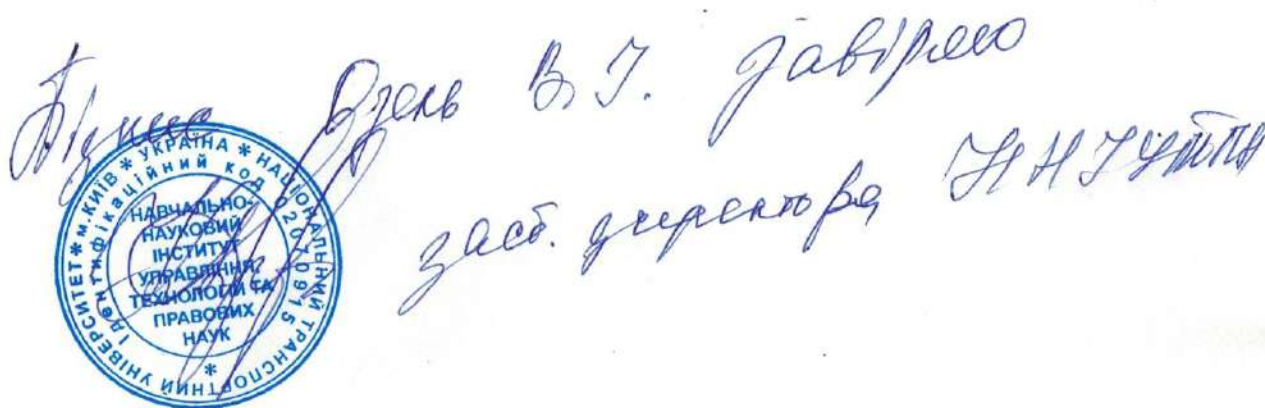 Підпис Дзень В.І. завіряю
заст. директора ННІУТПН
УКРАЇНА * НАЦІОНАЛЬНИЙ ТРАНСПОРТНИЙ УНІВЕРСИТЕТ * м.КИЇВ *
Ідентифікаційний код 02070915
НАВЧАЛЬНО-
НАУКОВИЙ
ІНСТИТУТ
УПРАВЛІННЯ,
ТЕХНОЛОГІЙ ТА
ПРАВОВИХ
НАУК
*